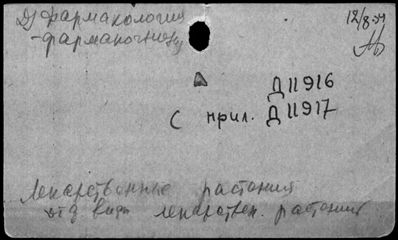 Д) фармакология
-фармакогнозия
12/8-59
Д 11916
с прил. Д 11917
Лекарственные растения
отд виды лекарствен. растений